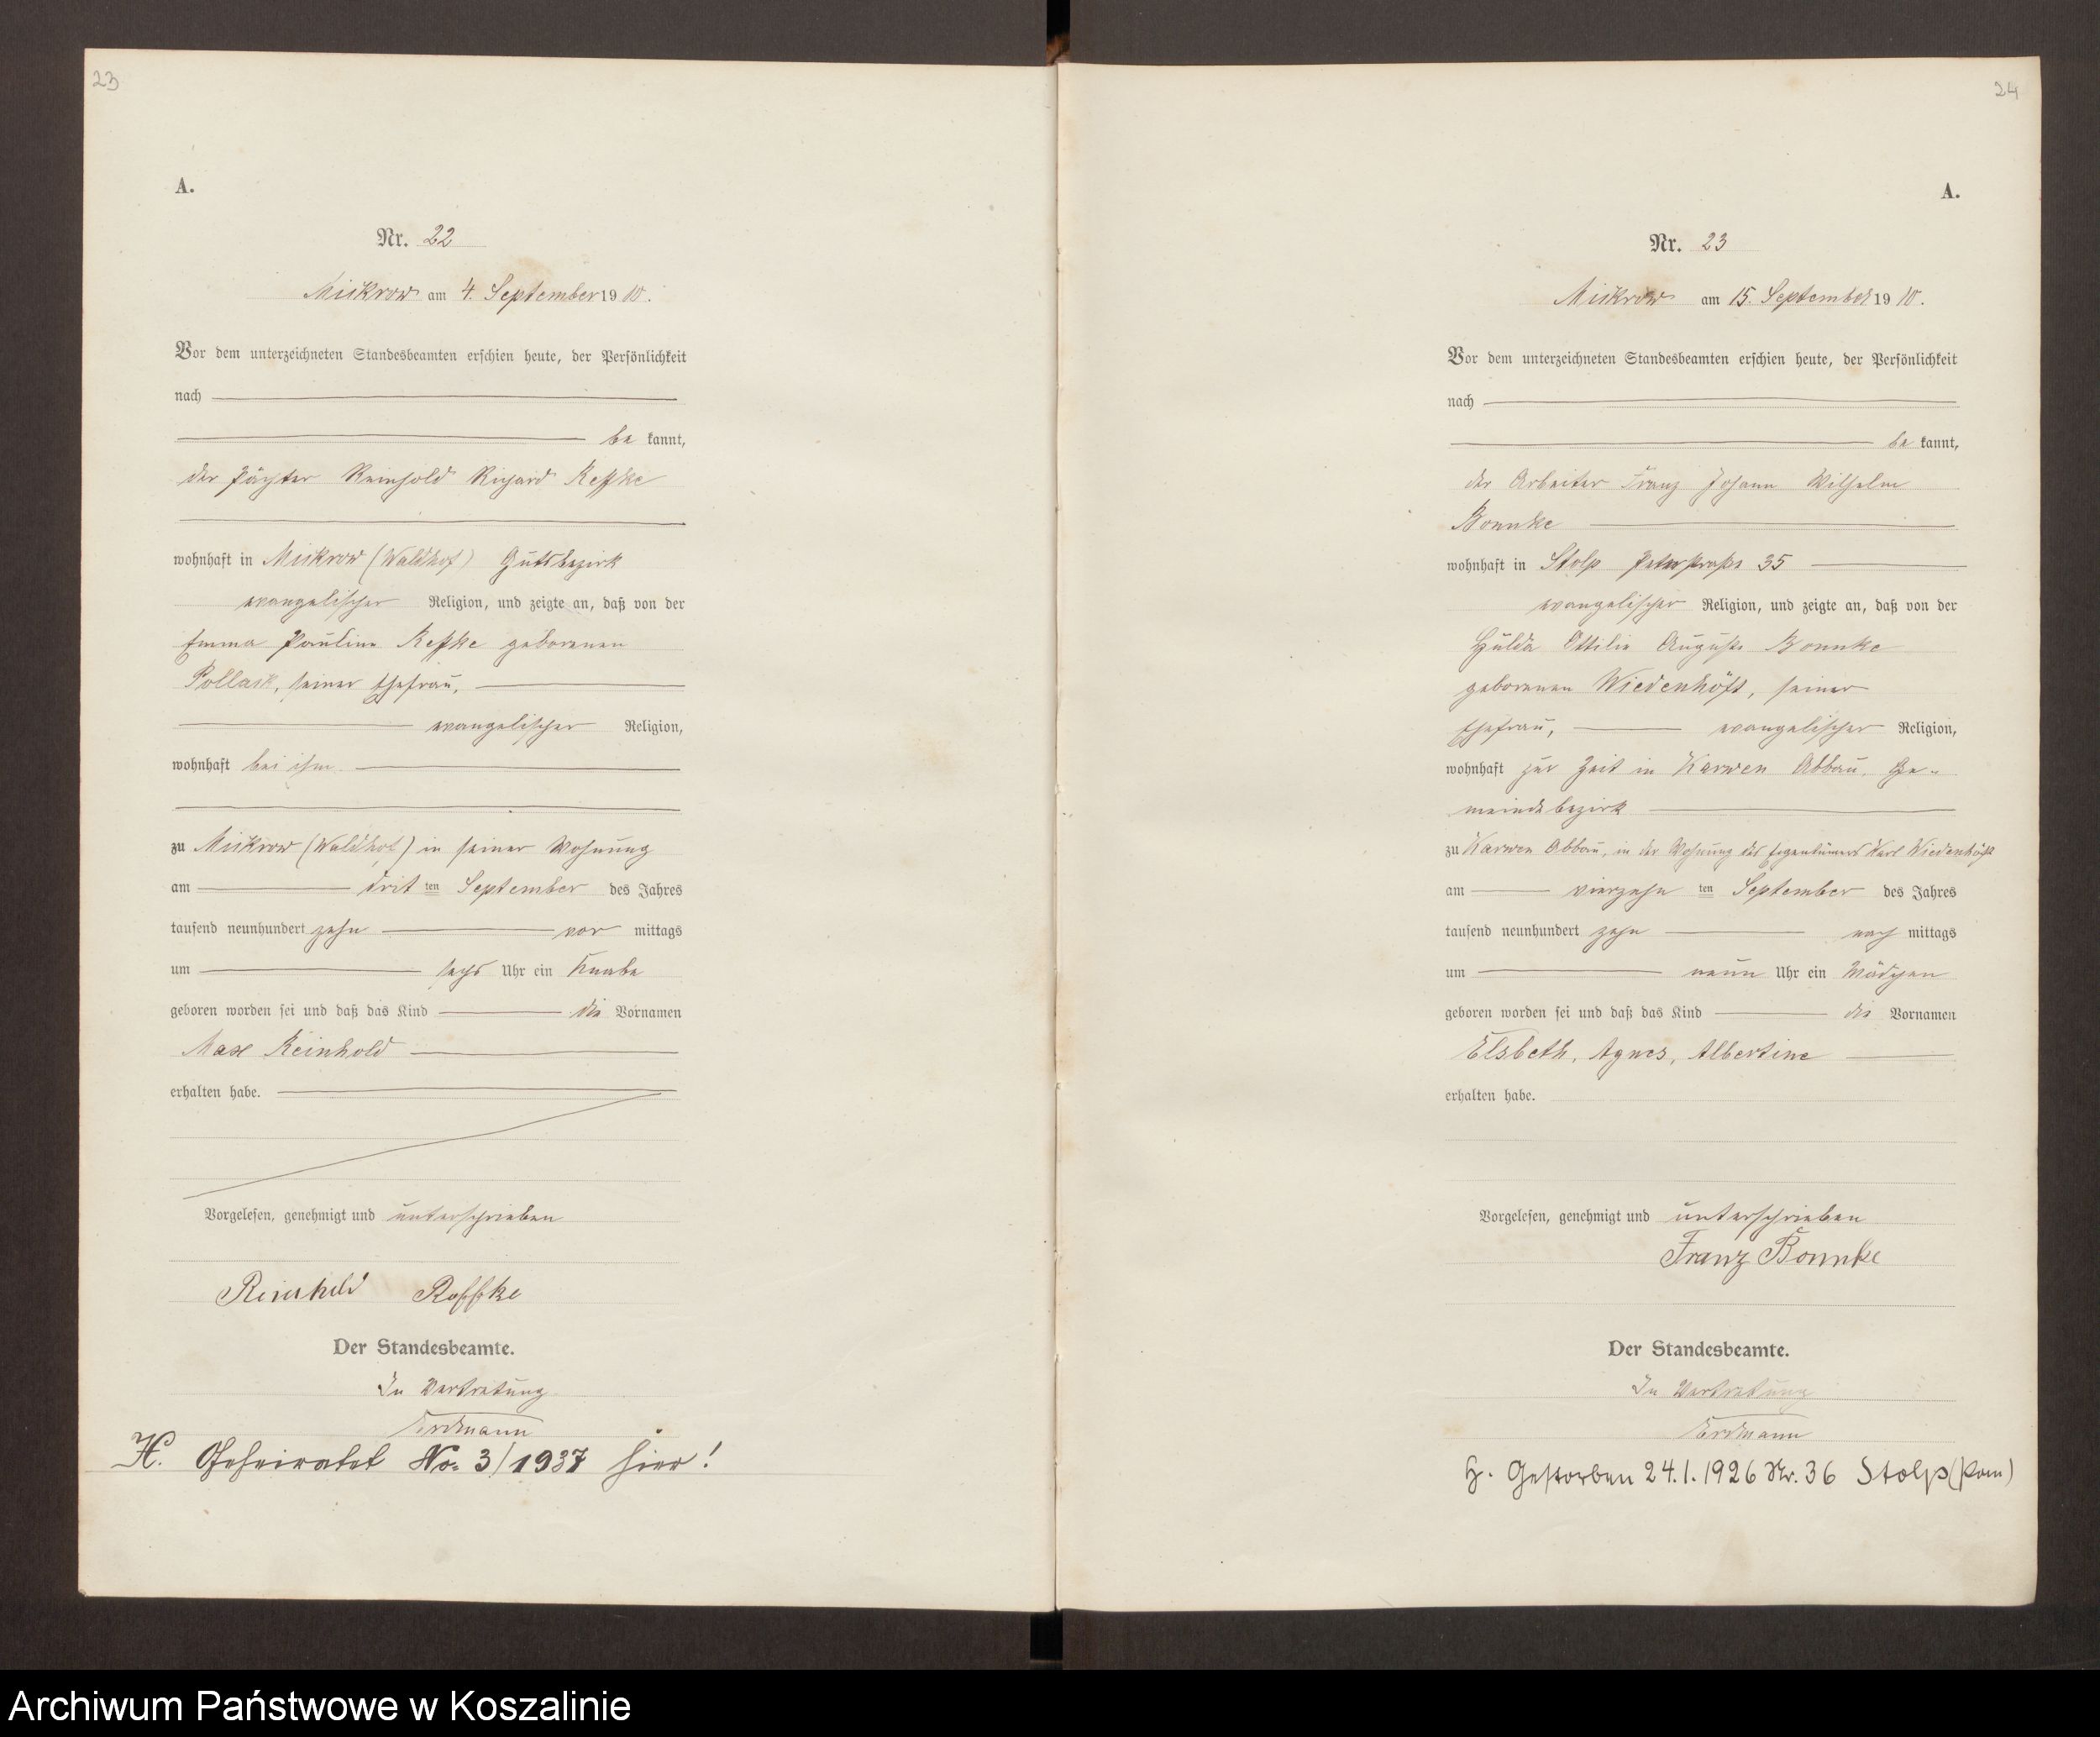 23
A.
Nr. 22
Mikrow am 4. September 1910.
Vor dem unterzeichneten Standesbeamten erschien heute, der Persönlichkeit
nach
be kannt,
der Pächter Reinhold Richard Reffke
wohnhaft in Mikrow (Waldhof) Gutsbezirk
evangelischer Religion, und zeigte an, daß von der
Emma Pauline Reffke geborenen
Pollack, seiner Ehefrau,
evangelischer Religion,
wohnhaft bei ihm.
zu Mikrow (Waldhof) in seiner Wohnung
am drit ten September des Jahres
tausend neunhundert zehn vor mittags
um sechs Uhr ein Knabe
geboren worden sei und daß das Kind die Vornamen
Max Reinhold
erhalten habe.
Vorgelesen, genehmigt und unterschrieben
Reinhold Reffke
Der Standesbeamte.
In Vertretung
Erdmann
H. Geheiratet No. 3/1937 hier!
24
A.
Nr. 23
Mikrow am 15. September 1910.
Vor dem unterzeichneten Standesbeamten erschien heute, der Persönlichkeit
nach
be kannt,
der Arbeiter Franz Johann Wilhelm
Bonnke
wohnhaft in Stolp Peterstraße 35
evangelischer Religion, und zeigte an, daß von der
Hulda Ottilie Auguste Bonnke
geborenen Wiedenhöft, seiner
Ehefrau, evangelischer Religion,
wohnhaft zur Zeit in Karwen Abbau, Ge-
meindebezirk
zu Karwen Abbau, in der Wohnung des Eigentümers Karl Wiedenhöft
am vierzehn ten September des Jahres
tausend neunhundert zehn nach mittags
um neun Uhr ein Mädchen
geboren worden sei und daß das Kind die Vornamen
Elsbeth, Agnes, Albertine
erhalten habe.
Vorgelesen, genehmigt und unterschrieben
Franz Bonnke
Der Standesbeamte.
In Vertretung
Erdmann
H. Gestorben 24.1.1926 Nr. 36 Stolp (Pom)
Archiwum Państwowe w Koszalinie